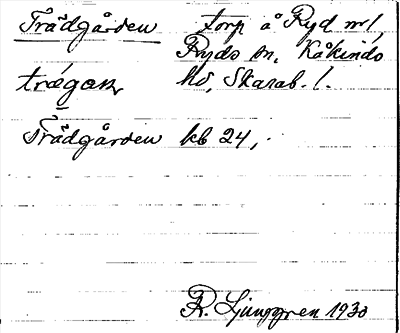 Trädgården torp å Ryd nr 1,
Ryds sn, Kåkinds
hd, Skarab. l.
Trädgården kb 24,
R. Ljunggren 1930